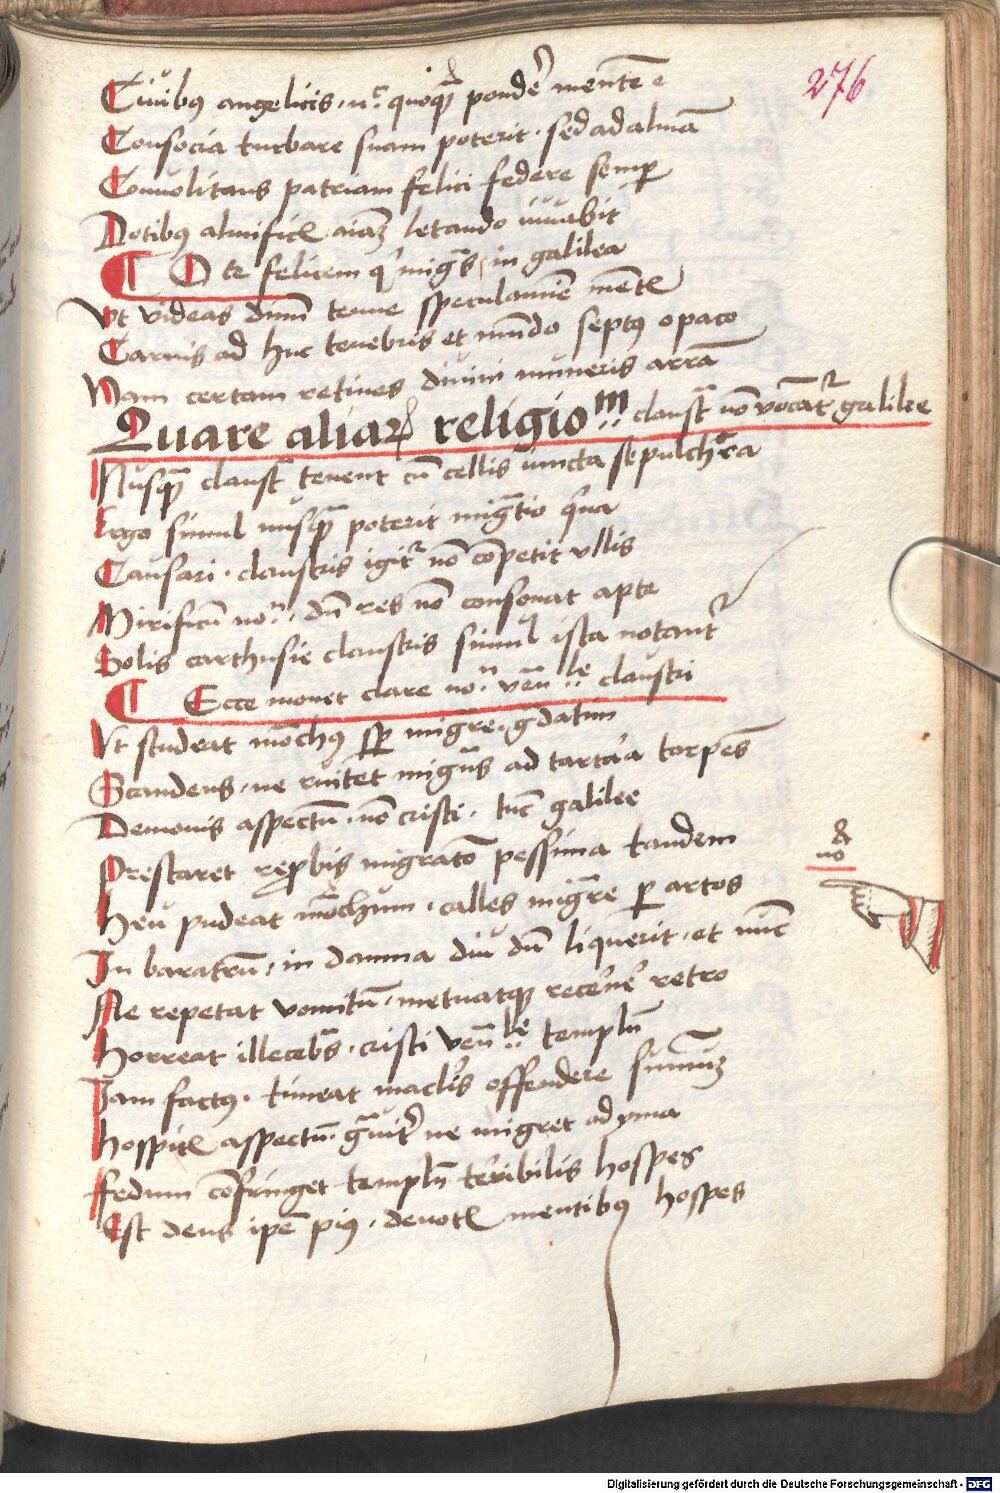 276
Ciuibus angelicis. nec quoque pondere mentem
Consocia turbare suam poterit. sed ad almā
Conuolitans patriam felici federe semper
Dotibus almificis aiaȝ letando iuuabit
¶ O te felicem qui migras in galilea
Vt videas diuum tenue speculamine mentis
Carnis ad huc tenebris et mūdo septus opaco
Nam certam retines diuini muneris arrā
Quare aliarꝝ religionum claustra nō vocātur galilee
Nusquā claustra tenent cū cellis iuncta sepulchra
Ergo simul nusquā poterit migratio quina
Causari. claustris igitur nō cōpetit vllis
Mirificū nomen. dū res nō consonat apte
Solis carthusie claustris simul ista notantur
¶ Ecce monet clare nomen venerabile claustri
Vt studeat mōchus semper migrare. gradatim
Scandens. ne ruitet migrans ad tartara torpens
Demonis aspectum. nō cristi. tunc galilee
Prestaret reprobis migratō pessima tandem
Heu pudeat mōchum. calles migrare per artos
In baratrū. in damna diu dū liquerit. et nunc
Ne repetat vomitū. metuatque recedere retro
Horreat illecebras. cristi venerabile templū
Iam factus. timeat maculis offendere summuȝ
Hospitis aspectū. grauiter ne migret ad yma
Fedum cōfringet templū terribilis hospes
Est deus ipse pius. deuotis mentibus hospes
no
Digitalisierung gefördert durch die Deutsche Forschungsgemeinschaft - DFG